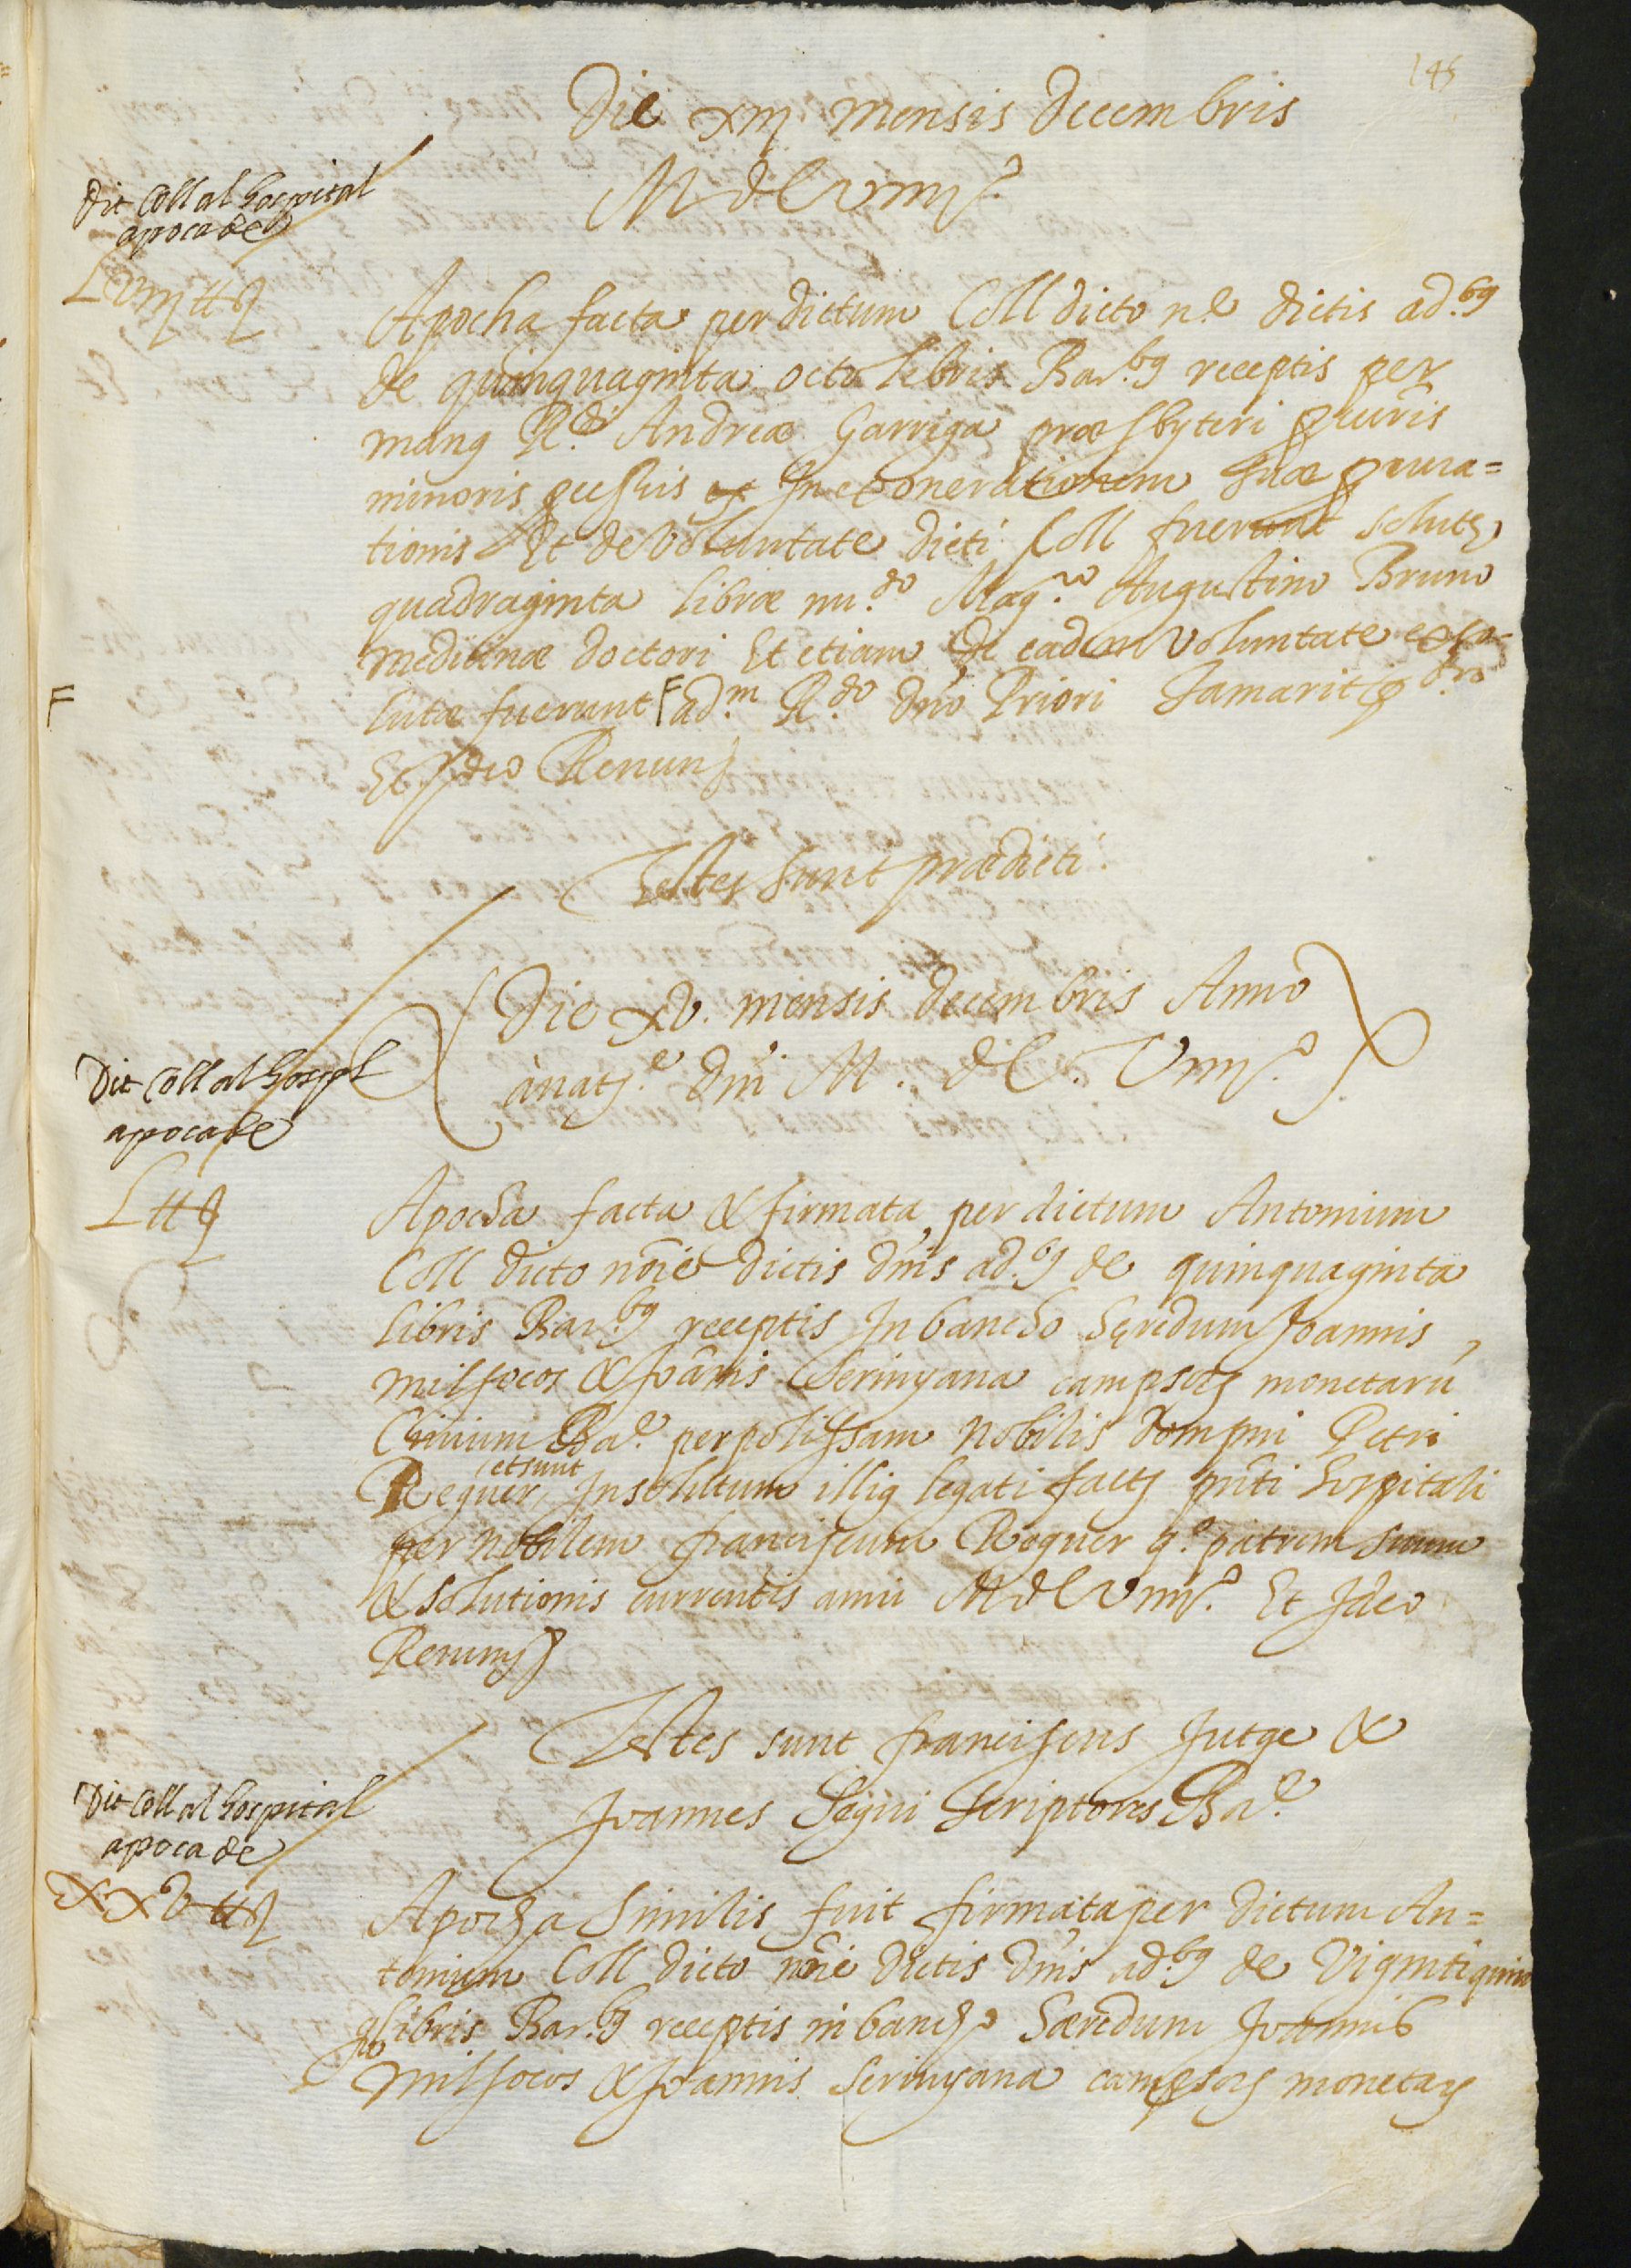 145
Die xiij mensis Decembris
MdCviiij.º
Dit Coll al hospital
apoca de
Lviij ℔ß
Apocha facta per dictum Coll dicto n.e dictis ad.bꝰ
de quinquaginta octo libris Bar.bꝰ receptis per
manꝰ R.di Andreæ Garriga præsbyteri
minoris In exonerationem suæ procura=
tionis Et de voluntate dicti Coll fuerunt
quadraginta libræ Mag.co Augustino Bruno
medicinæ doctori Et etiam de eadem voluntate exso-
lutæ fuerunt F ad.m R.do dno Priori Jamarit
F
Et Ideo Renun
Testes sunt prædicti
Die xv. mensis decembris Anno
a nat.e dni M. dC. Viiij.º
Dit Coll al hospl
apoca de
L ℔ß
Apocha facta & firmata per dictum Antonium
Coll dicto noie dictis dnis ad.bꝰ de quinquaginta
libris Bar.bꝰ receptis In bancho heredum Joannis
milsocos & Joannis Serinyana campsoꝝ monetarū
Civium Ba.e per polissam Nobilis dompni Petri
Reguer, et sunt In solutum illiꝰ legati hospitali
per nobilem franciscum Reguer qº. patrem suum
& solutionis currentis anni MdCviiij.º Et Ideo
Renun
Testes sunt franciscus Jutge &
Joannes Segui scriptores Ba.e
Dit Coll al hospital
apoca de
XXV ℔ß
Apocha similis fuit firmata per dictum An=
tonium Coll dicto noie dictis dnis ad.bꝰ de viginti quin
qꝫ libris Bar.bꝰ receptis in banchº hæredum Joannis
milsocos & Joannis serinyana campsoꝝ monetaꝝ